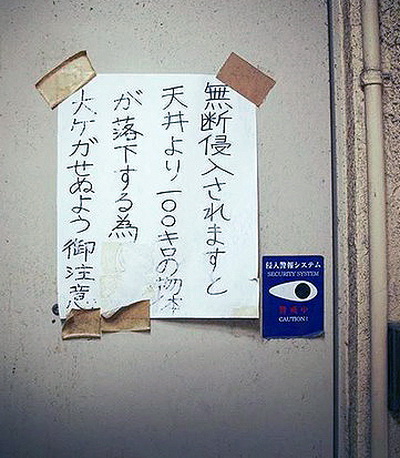 無断侵入されますと
天井より一〇〇キロの物体
が落下する為
大ケガせぬよう御注意
侵入警報システム
SECURITY SYSTEM
警戒中
CAUTION!